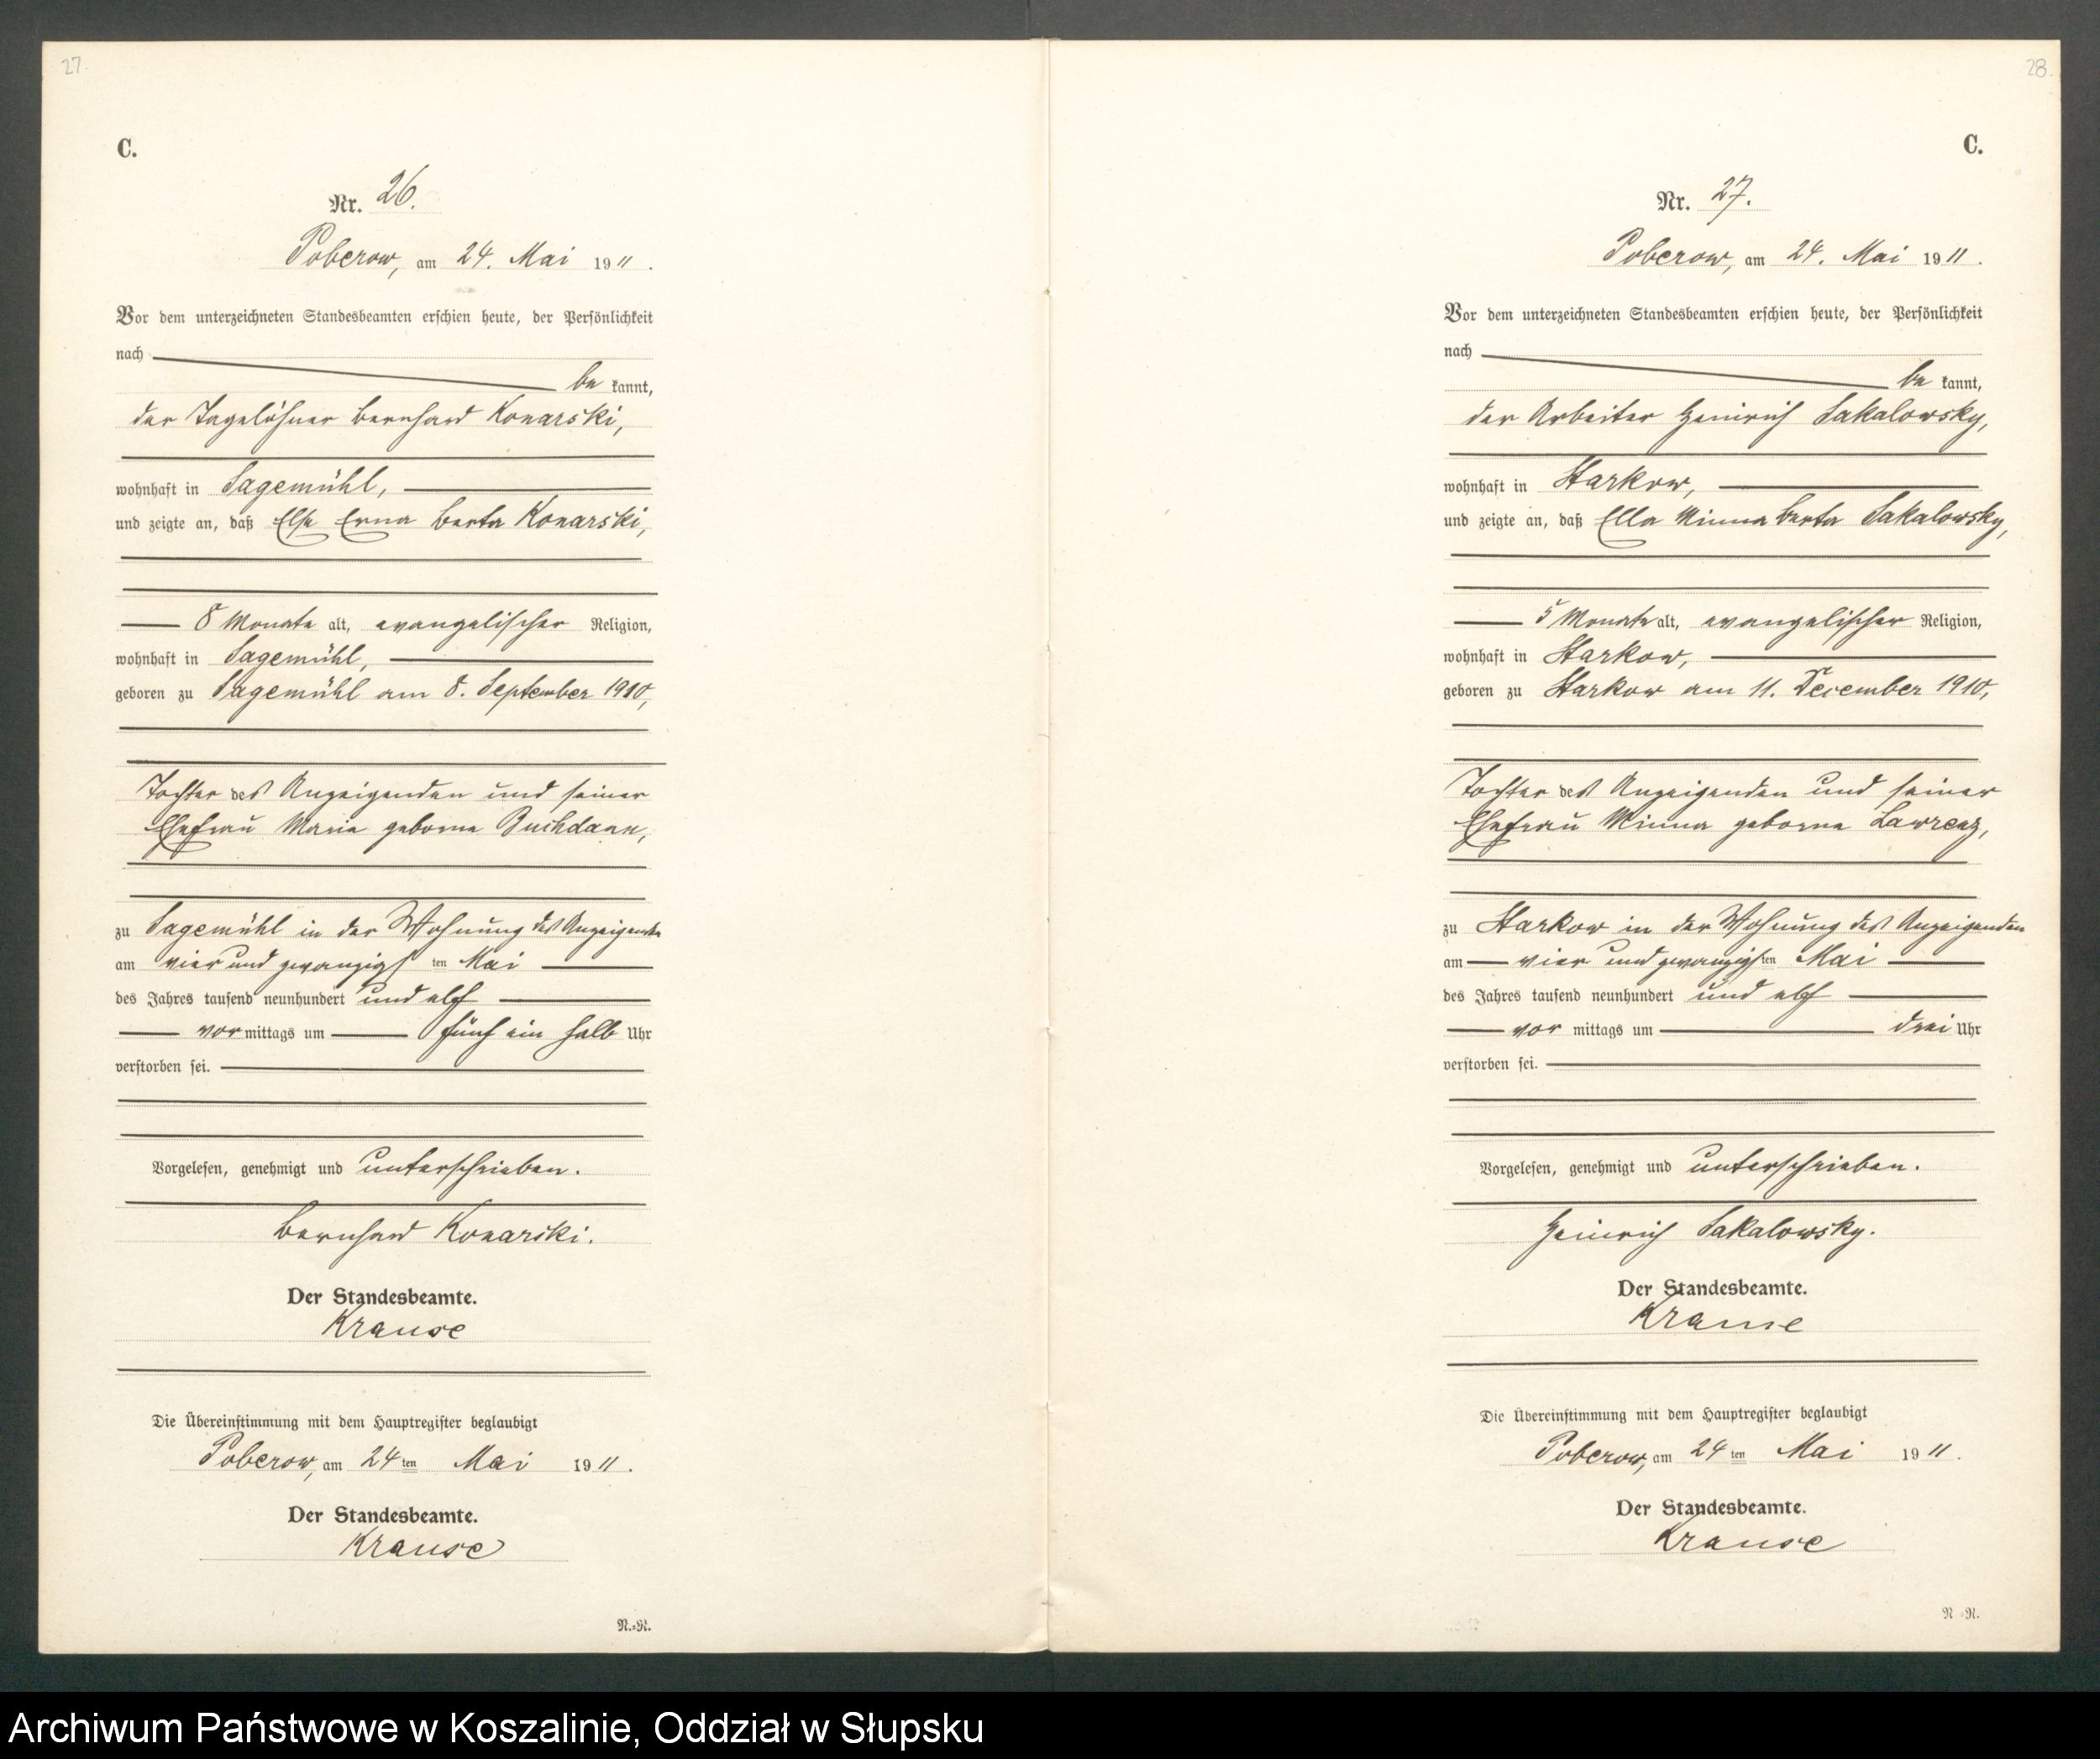 27.
C.
Nr. 26.
Poberow, am 24. Mai 1911.
Vor dem unterzeichneten Standesbeamten erschien heute, der Persönlichkeit
nach
be kannt,
der Tagelöhner Bernhard Konarski,
wohnhaft in Sagemühl,
und zeigte an, daß Else Erna Berta Konarski,
8 Monate alt, evangelischer Religion,
wohnhaft in Sagemühl,
geboren zu Sagemühl am 8. September 1910,
Tochter des Anzeigenden und seiner
Ehefrau Marie geborne
zu Sagemühl in der Wohnung des Anzeigenden
am vier und zwanzigsten Mai
des Jahres tausend neunhundert und elf
vormittags um fünf ein halb Uhr
verstorben sei.
Vorgelesen, genehmigt und unterschrieben.
Bernhard Konarski.
Der Standesbeamte.
Krause
Die Übereinstimmung mit dem Hauptregister beglaubigt
Poberow, am 24ten Mai 1911.
Der Standesbeamte.
Krause
N.=N.
28.
C.
Nr. 27.
Poberow, am 24. Mai 1911.
Vor dem unterzeichneten Standesbeamten erschien heute, der Persönlichkeit
nach
be kannt,
der Arbeiter Heinrich Sakalowsky,
wohnhaft in Starkow,
und zeigte an, daß Ella Minna Berta Sakalowsky,
5 Monate alt, evangelischer Religion,
wohnhaft in Starkow,
geboren zu Starkow am 11. Dezember 1910,
Tochter des Anzeigenden und seiner
Ehefrau Minna geborne Lawrenz,
zu Starkow in der Wohnung des Anzeigenden
am vier und zwanzigsten Mai
des Jahres tausend neunhundert und elf
vor mittags um drei Uhr
verstorben sei.
Vorgelesen, genehmigt und unterschrieben.
Heinrich Sakalowsky.
Der Standesbeamte.
Krause
Die Übereinstimmung mit dem Hauptregister beglaubigt
Poberow, am 24ten Mai 1911.
Der Standesbeamte.
Krause
N.=N.
Archiwum Państwowe w Koszalinie, Oddział w Słupsku